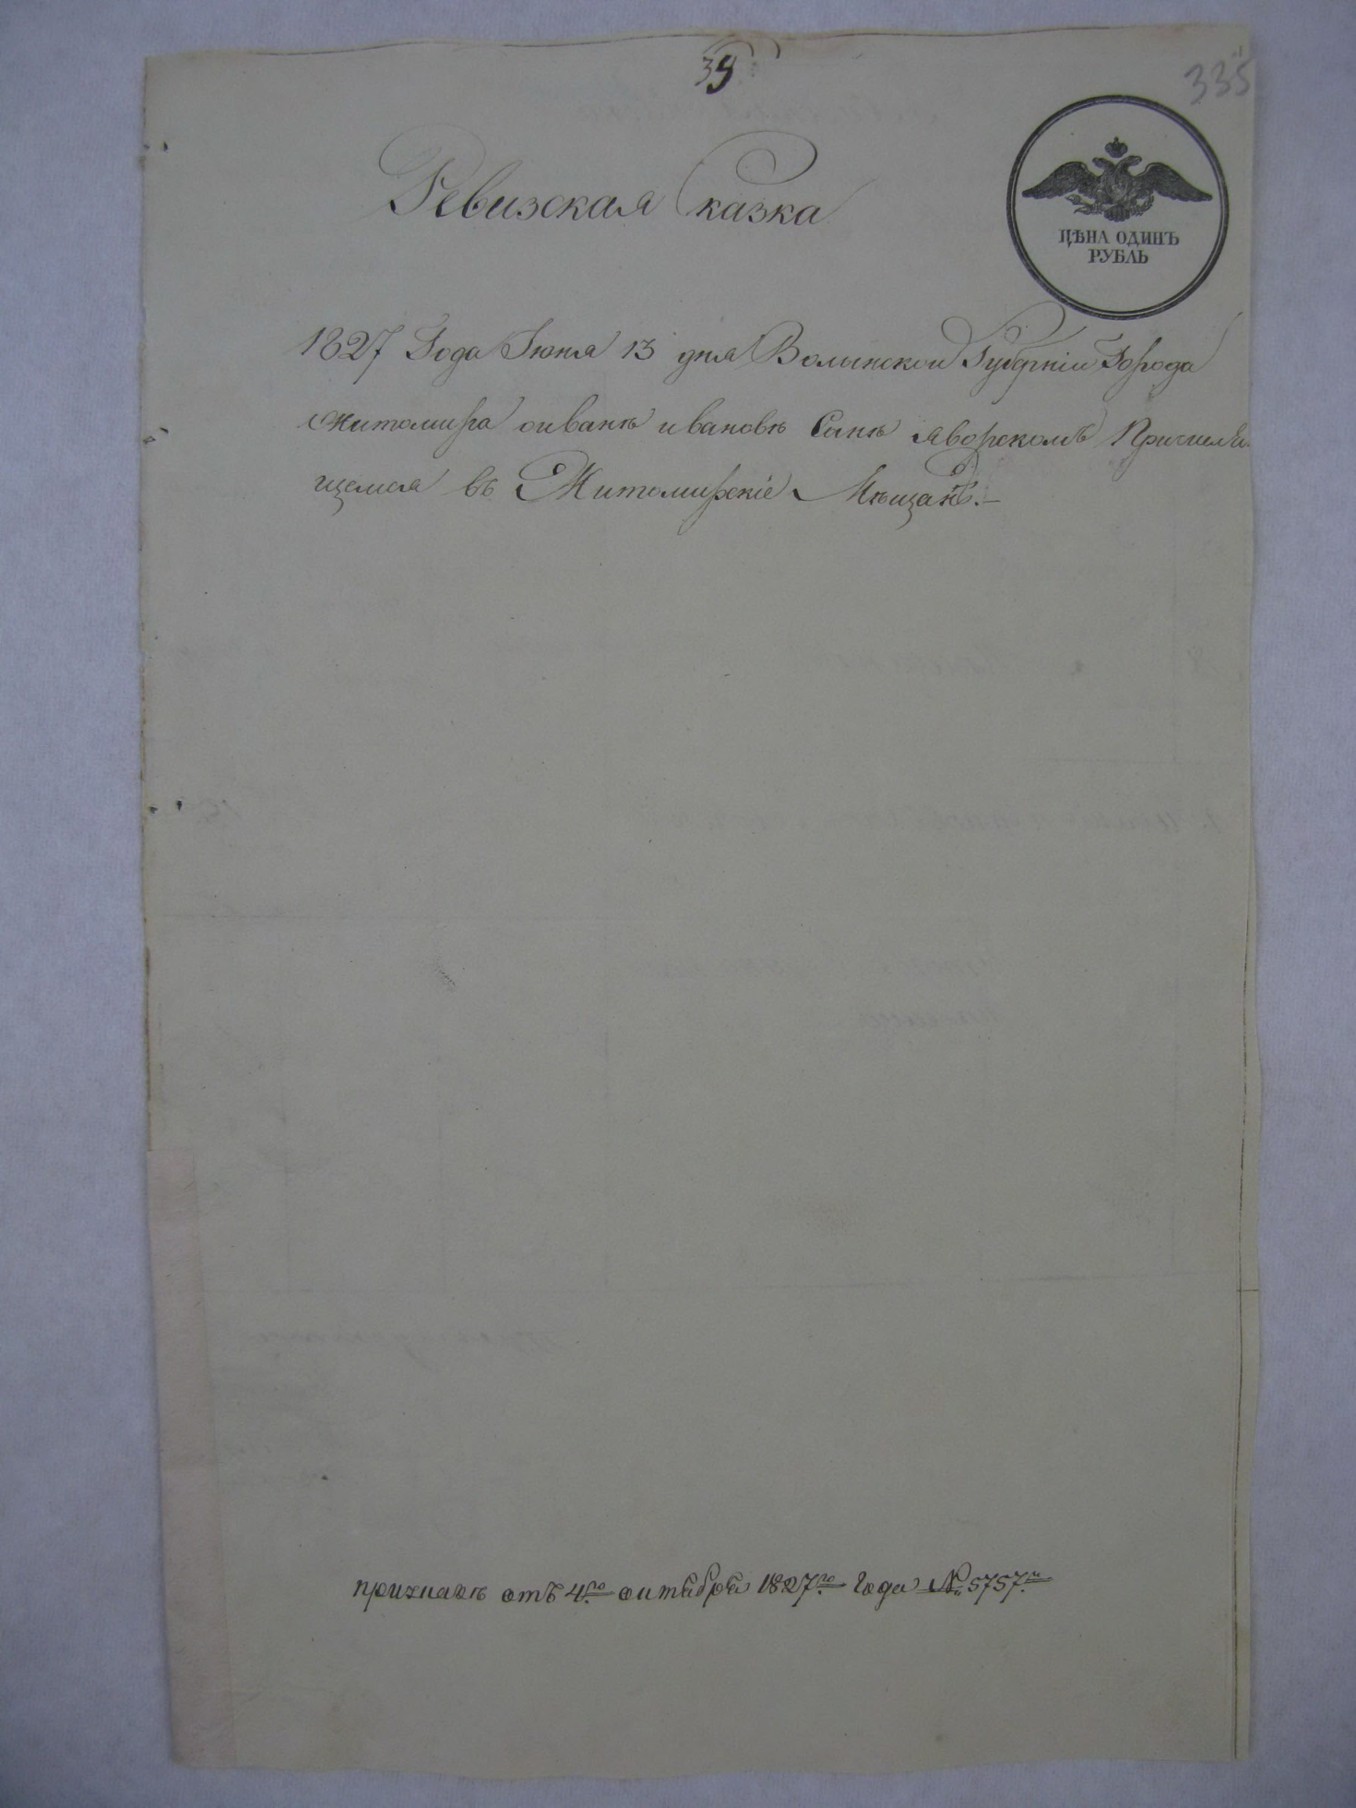 39
335
Ревизская Сказка
ЦѢНА ОДИНЪ
РУБЛЬ
1827 Года Июня 13 дня Волынской Губерніи Города
Житомира оиванѣ ивановѣ Сынѣ яворскомъ Причисля
щемся въ Житомирскіе Мѣщанѣ.
отъ 4го октября 1827го Года № 5757.